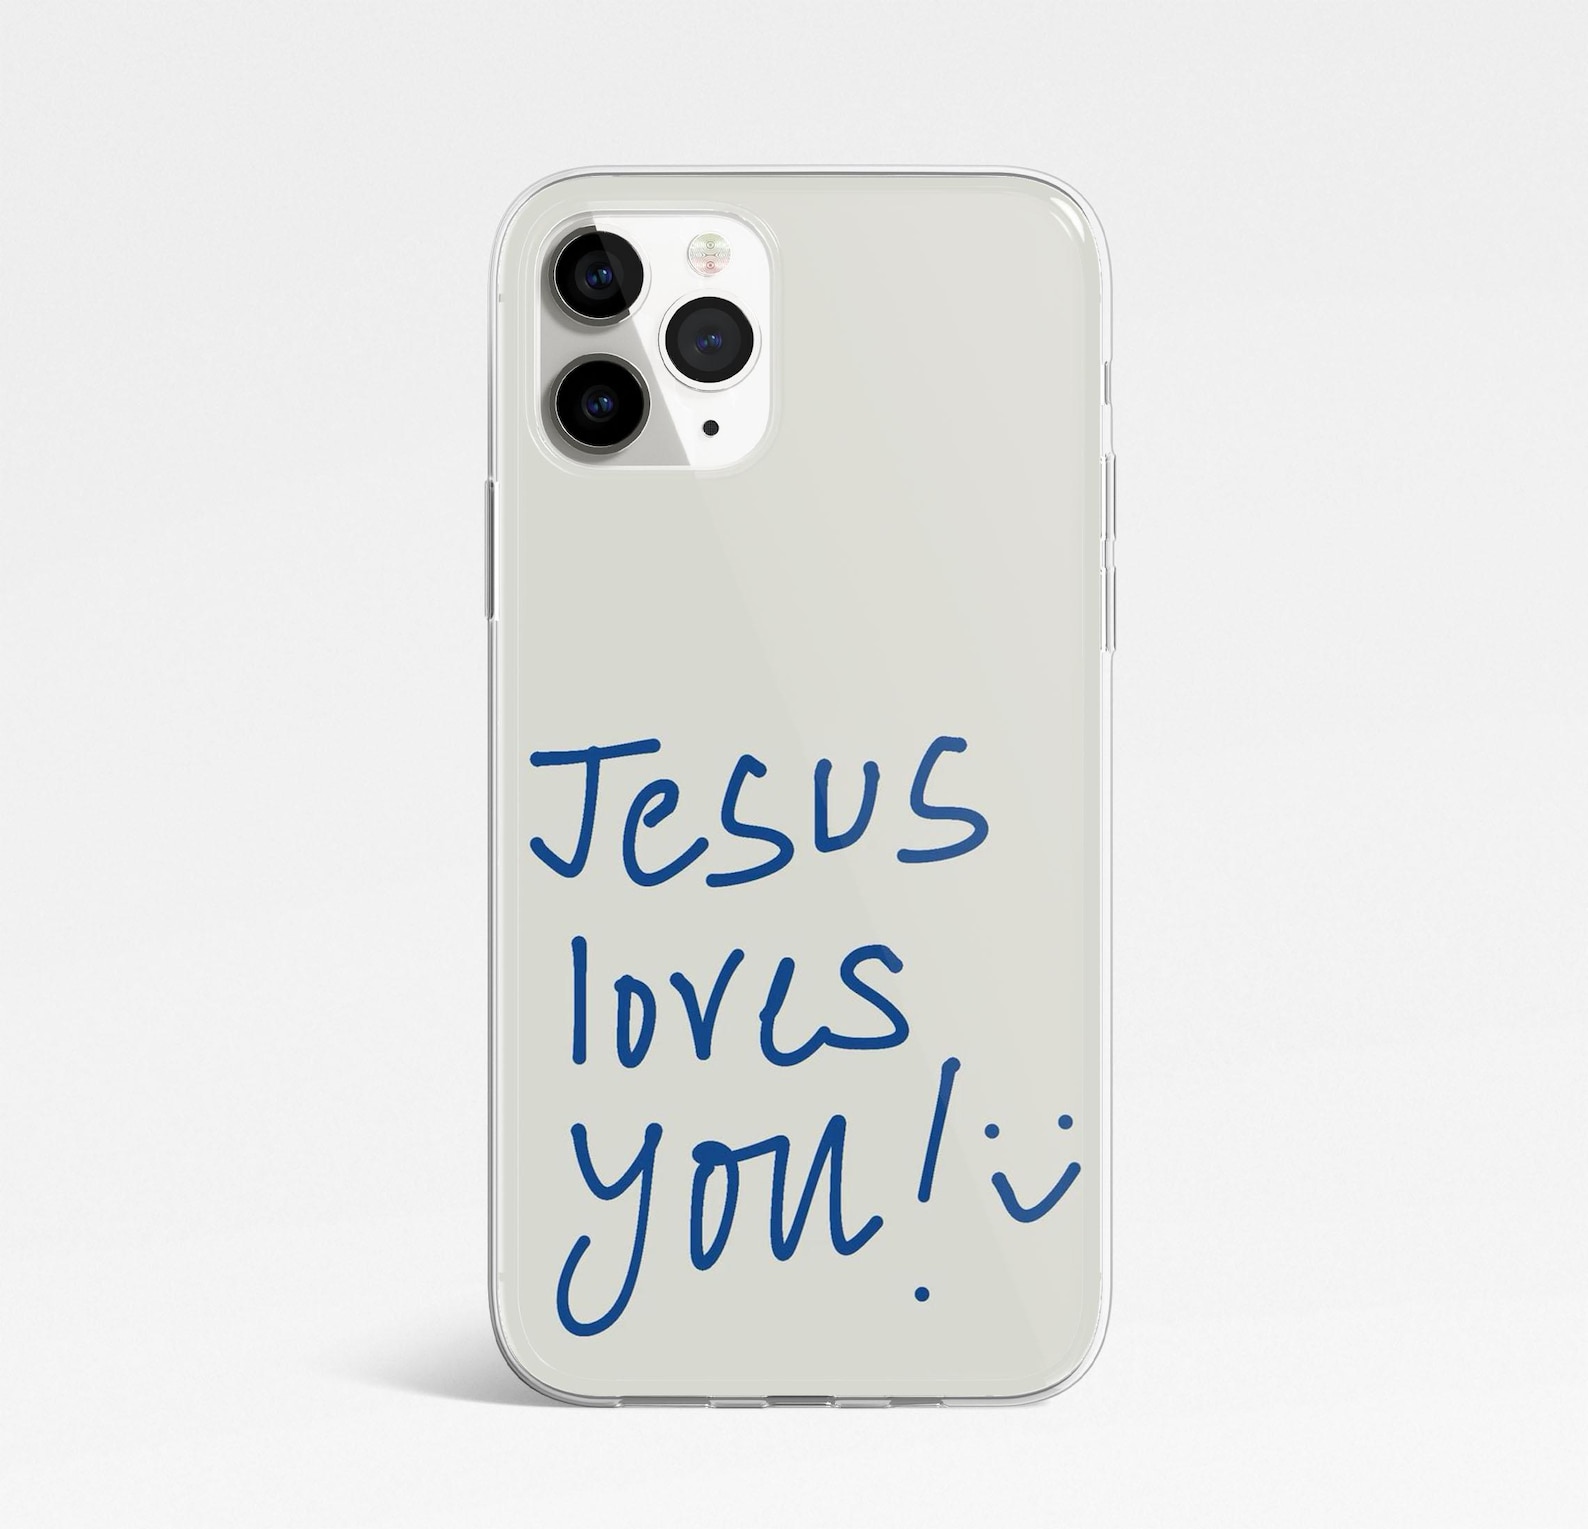 Jesus
loves
you! :)